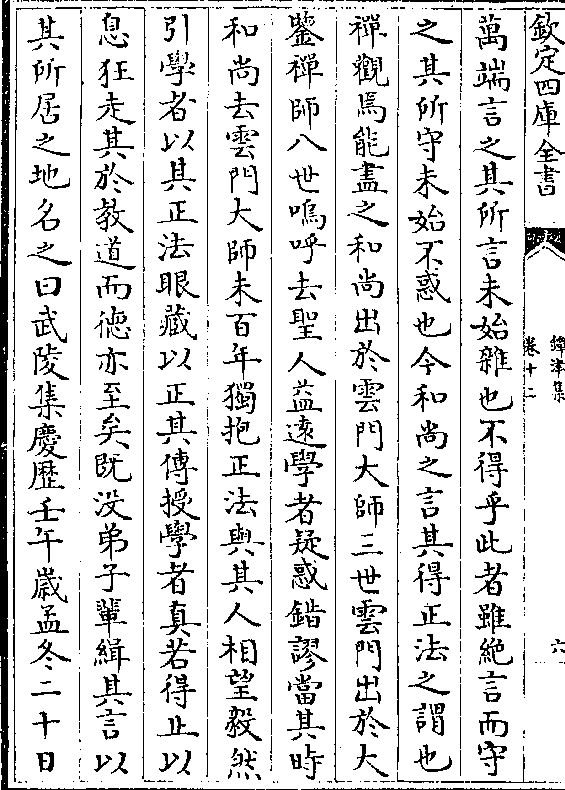 欽定四庫全書
鐔津集
卷十二
六
萬端言之其所言未始雜也不得乎此者雖絶言而守
之其所守未始不惑也今和尚之言其得正法之謂也
禪觀焉能盡之和尚出於雲門大師三世雲門出於大
鑒禪師八世嗚呼去聖人益逺學者疑惑錯謬當其時
和尚去雲門大師未百年獨抱正法與其人相望毅然
引學者以其正法眼藏以正其傳授學者真若得止以
息狂走其於教道而德亦至矣既没弟子輩緝其言以
其所居之地名之曰武陵集慶歷壬午嵗孟冬二十日